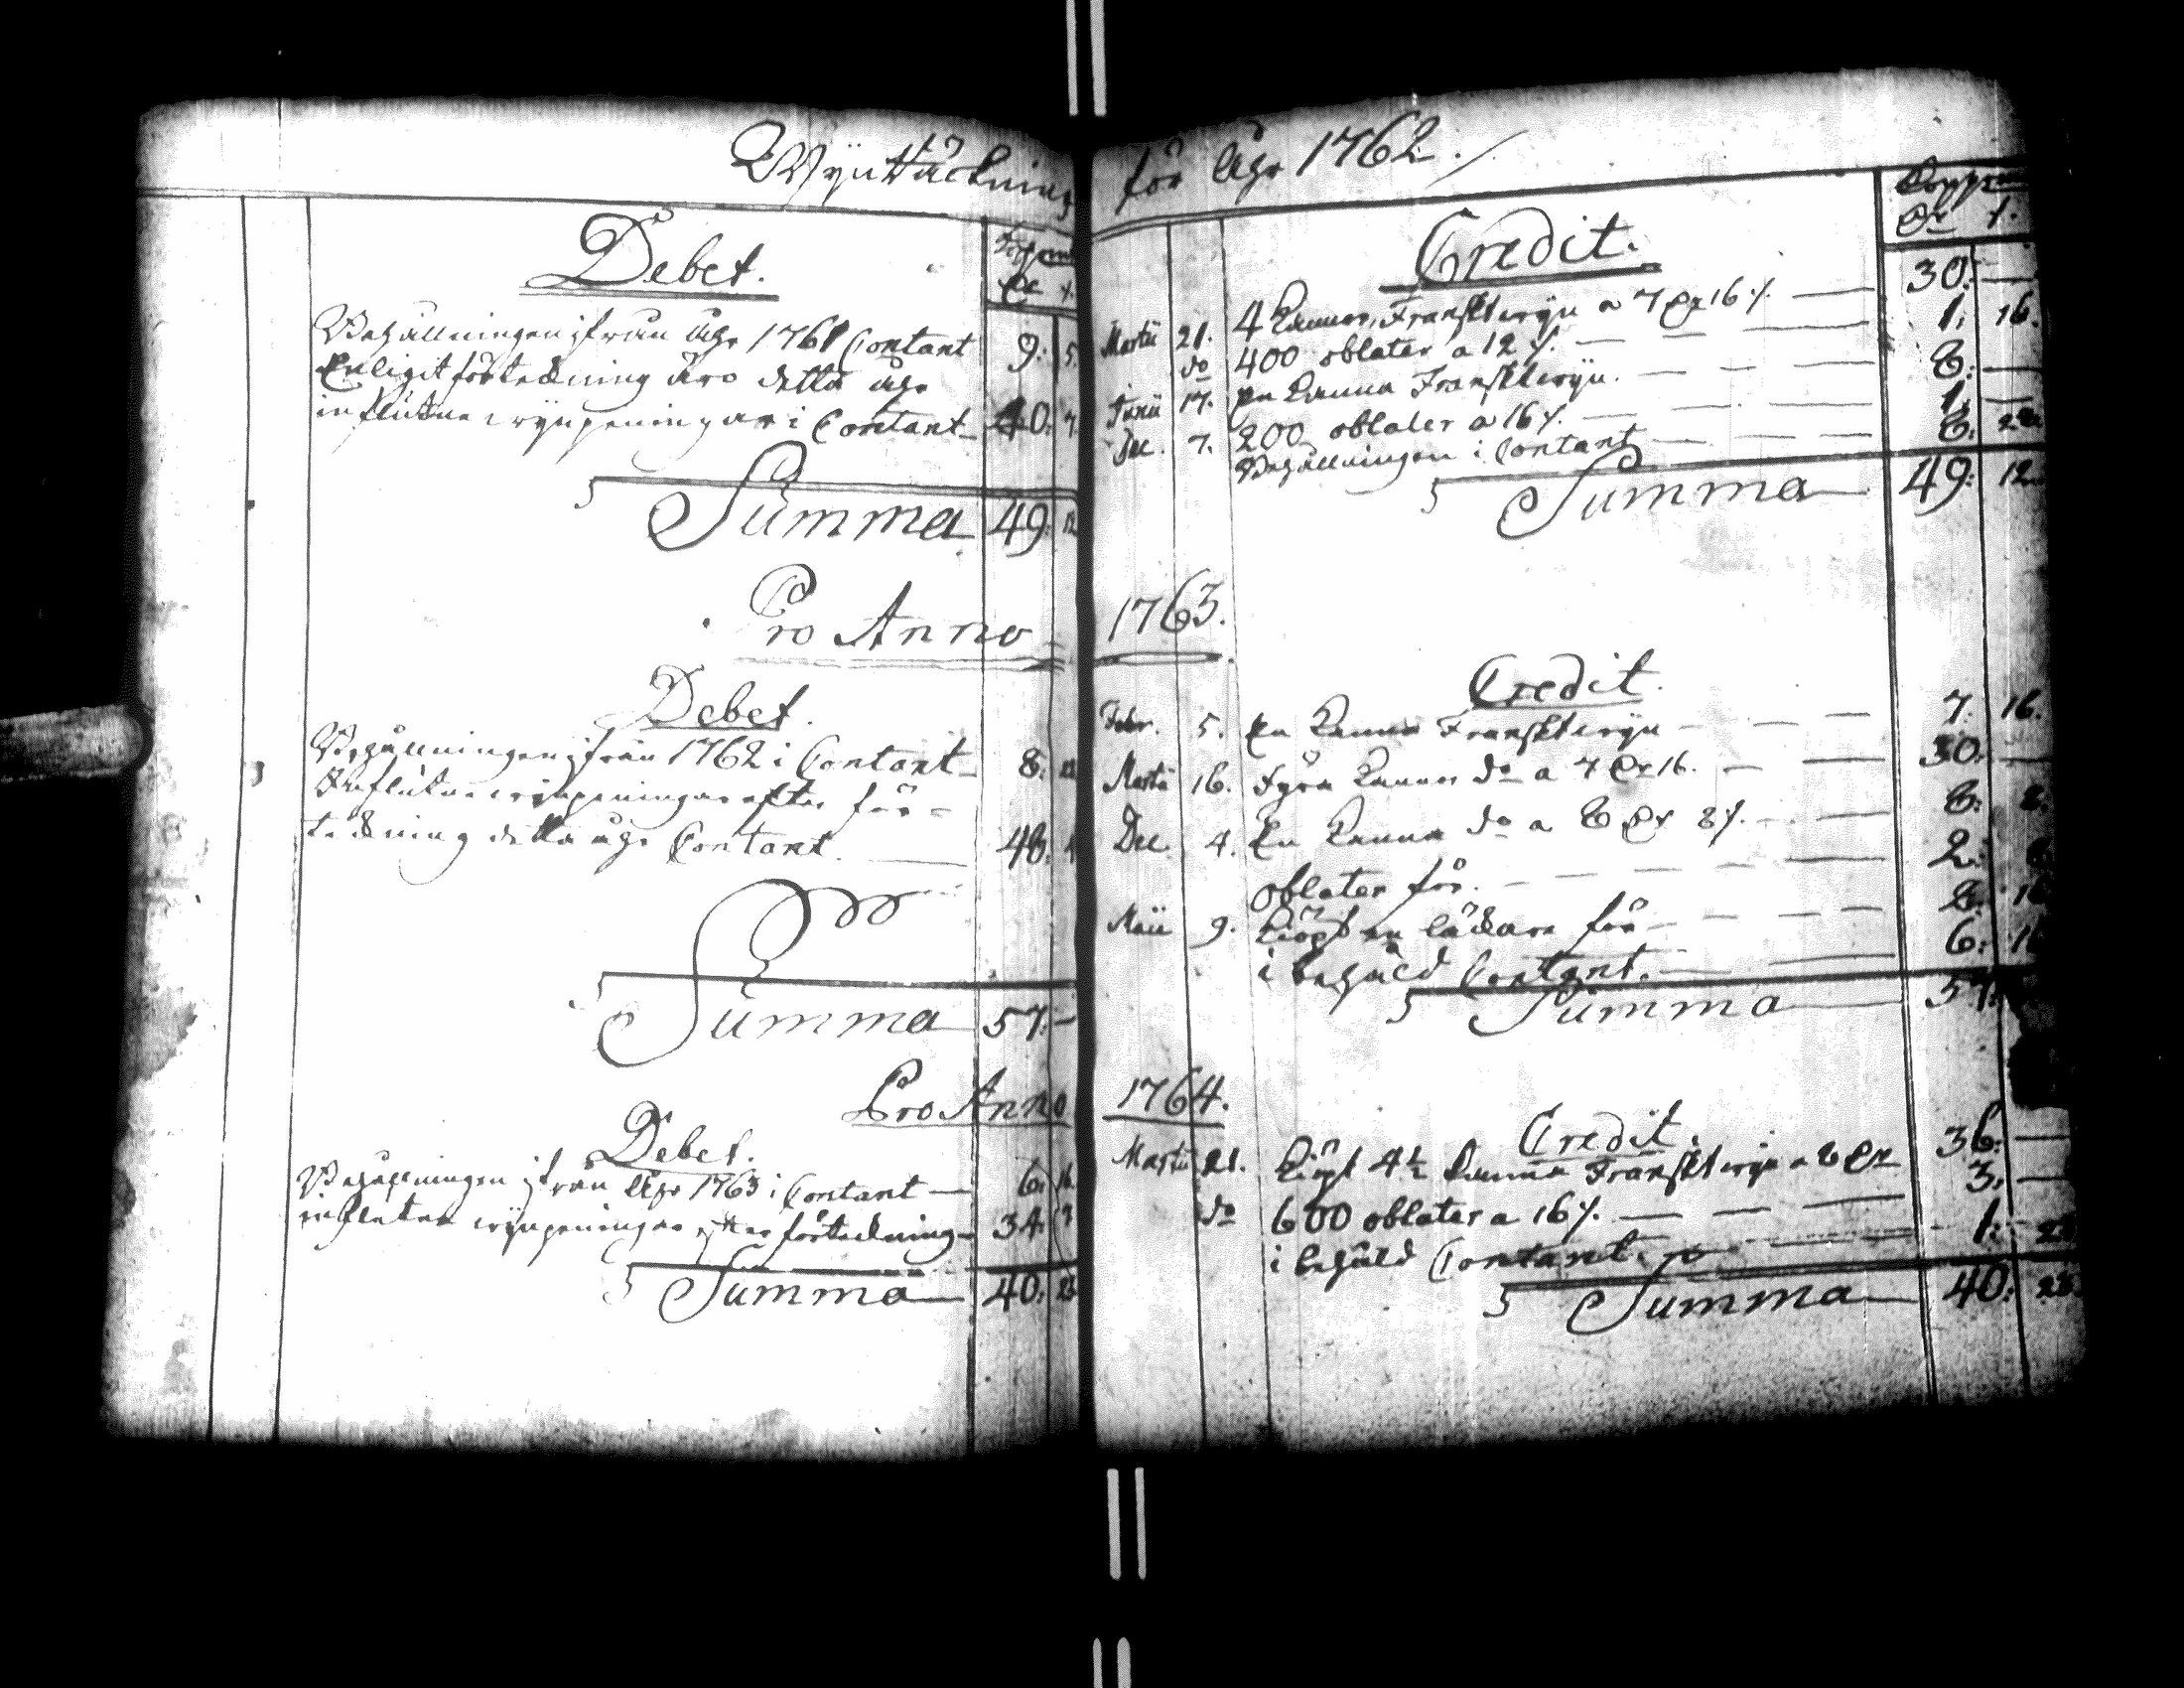 Wijnräckning
Debet.
Behållningen ifrån åhr 1761 Contant 9: 5
Enligit förtekning äro detta åhr
influtne wijnpeningar i Contant 40: 7
Summa 49: 12
Pro Anno
Debet.
Behållningen ifrån 1762 i Contant 8:
Influtne wijnpeningar efter för=
tekning detta åhr Contant. 48:
Summa 57. —
Pro Anno
Debet.
Behållningen ifrån åhr 1763 i Contant — 6: 16
influtne wijnpeningar efter förtekning 34:
Summa 40:
för åhr 1762.
Credit.
Martii 21. 4 Kannor Franskt wijn a 7 Dr 16 /. 30: —
do 400 oblater a 12 /. 1: 16.
Junii 17. En Kanna Franskt wijn. 8: —
Dec. 7. 200 oblater a 16 /. 1: —
Behållningen i Contant 8:
Summa 49: 12
1763.
Credit.
Febr. 5. En Kanna Franskt wijn 7: 16.
Martii 16. Fyra Kannor do a 7 Dr 16. 30: —
Dec. 4. En Kanna do a 8 Dr 8 /. 8: 8.
oblater för. 2:
Maii 9. Kiöpt en lädare för
i behåld Contant. 6: 16
Summa 57:
1764.
Credit.
Martii 21. Kiöpt 4½ Kanna Franskt wijn a 8 Dr 36: —
do 600 oblater a 16 /. 3: —
i behåld Contant. 1:
Summa 40: